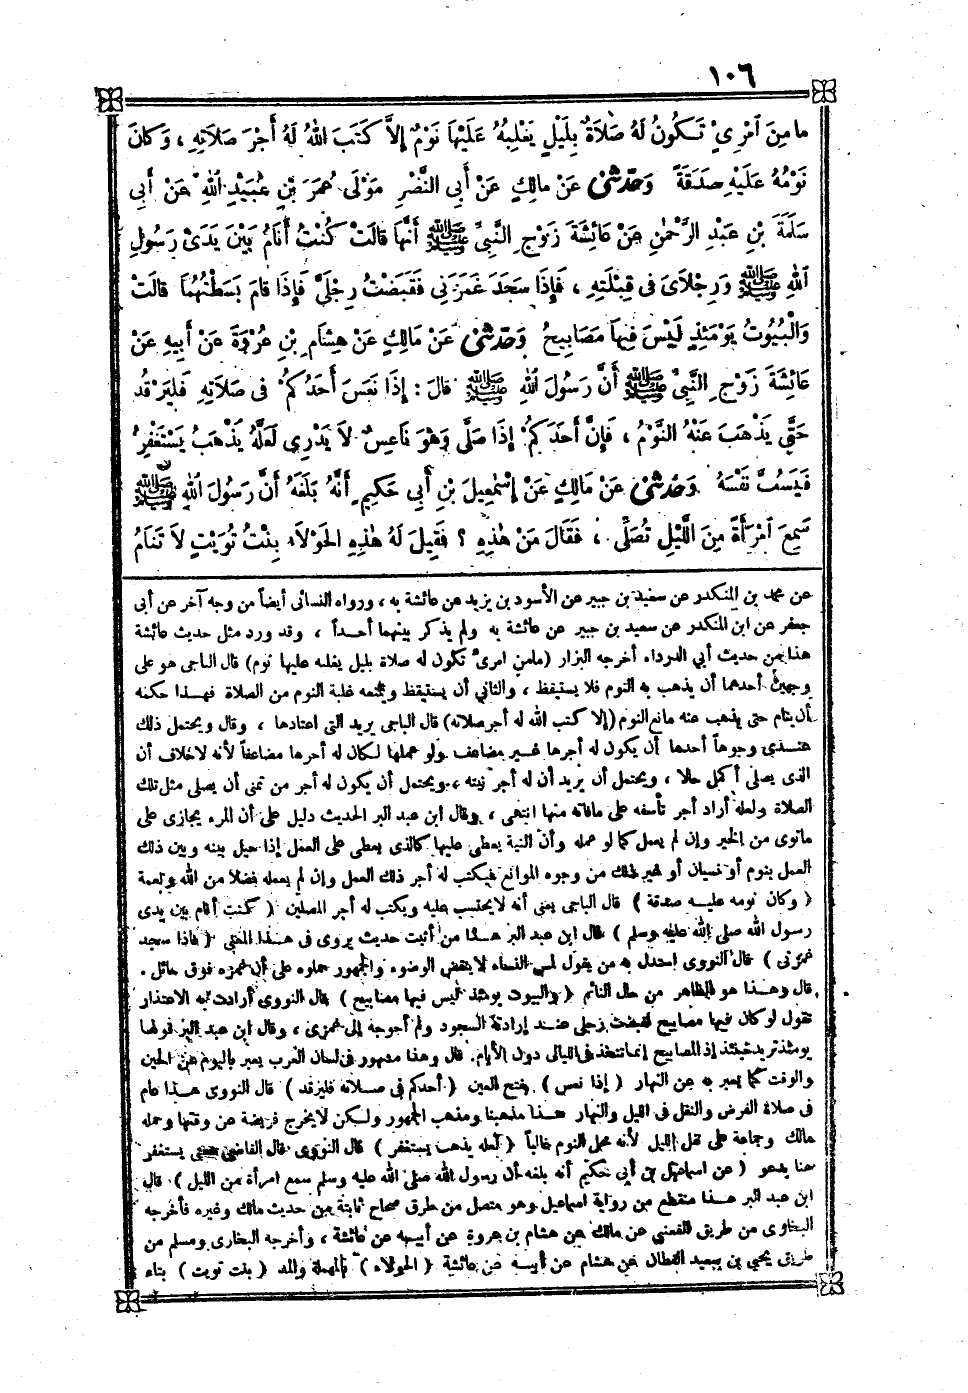 ١٠٦
مَا مِنَ امْرِىءٍ تَكُونُ لَهُ صَلَاةٌ بِلَيْلٍ يَغْلِبُهُ عَلَيْهَا نَوْمٌ إِلَّا كَتَبَ اللهُ لَهُ أَجْرَ صَلَاتِهِ ، وَكَانَ
نَوْمُهُ عَلَيْهِ صَدَقَةً وَحَدَّثَنِي عَنْ مَالِكٍ عَنْ أَبِي النَّضْرِ مَوْلَى عُمَرَ بْنِ عُبَيْدِ اللهِ عَنْ أَبِي
سَلَمَةَ بْنِ عَبْدِ الرَّحْمٰنِ عَنْ عَائِشَةَ زَوْجِ النَّبِيِّ ﷺ أَنَّهَا قَالَتْ كُنْتُ أَنَامُ بَيْنَ يَدَىْ رَسُولِ
اللهِ ﷺ وَرِجْلَاىَ فِى قِبْلَتِهِ ، فَإِذَا سَجَدَ غَمَزَنِى فَقَبَضْتُ رِجْلَىَّ فَإِذَا قَامَ بَسَطْتُهُمَا قَالَتْ
وَالْبُيُوتُ يَوْمَئِذٍ لَيْسَ فِيهَا مَصَابِيحُ وَحَدَّثَنِى عَنْ مَالِكٍ عَنْ هِشَامِ بْنِ عُرْوَةَ عَنْ أَبِيهِ عَنْ
عَائِشَةَ زَوْجِ النَّبِىِّ ﷺ أَنَّ رَسُولَ اللهِ ﷺ قَالَ : إِذَا نَعَسَ أَحَدُكُمْ فِى صَلَاتِهِ فَلْيَرْقُدْ
حَتَّى يَذْهَبَ عَنْهُ النَّوْمُ ، فَإِنَّ أَحَدَكُمْ إِذَا صَلَّى وَهُوَ نَاعِسٌ لَا يَدْرِى لَعَلَّهُ يَذْهَبُ يَسْتَغْفِرُ
فَيَسُبَّ نَفْسَهُ وَحَدَّثَنِى عَنْ مَالِكٍ عَنْ إِسْمٰعِيلَ بْنِ أَبِى حَكِيمٍ أَنَّهُ بَلَغَهُ أَنَّ رَسُولَ اللهِ ﷺ
سَمِعَ امْرَأَةً مِنَ اللَّيْلِ تُصَلِّى ، فَقَالَ مَنْ هٰذِهِ ؟ فَقِيلَ لَهُ هٰذِهِ الحَوْلَاءُ بِنْتُ تُوَيْتٍ لَا تَنَامُ
عن محمد بن المنكدر عن سعيد بن جبير عن الأسود بن يزيد عن عائشة به ، ورواه النسائى أيضاً من وجه آخر عن أبى
جعفر عن ابن المنكدر عن سعيد بن جبير عن عائشة به ولم يذكر بينهما أحداً ، وقد ورد مثل حديث عائشة
هذا من حديث أبي الدرداء أخرجه البزار (ما من امرىء تكون له صلاة بليل يغلبه عليها نوم) قال الباجى هو على
وجهين أحدهما أن يذهب به النوم فلا يستيقظ ، والثانى أن يستيقظ ويمنعه غلبة النوم من الصلاة فهذا حكمه
أن ينام حتى يذهب عنه مانع النوم (إلا كتب الله له أجر صلاته) قال الباجى يريد التى اعتادها ، وقال ويحتمل ذلك
عندى وجوهاً أحدها أن يكون له أجرها غير مضاعف ولو عملها لكان له أجرها مضاعفاً لأنه لاخلاف أن
الذى يصلى أكمل حالا ، ويحتمل أن يريد أن له أجر نيته ، ويحتمل أن يكون له أجر من تمنى أن يصلى مثل تلك
الصلاة ولعله أراد أجر تأسفه على مافاته منها انتهى ، وقال ابن عبد البر الحديث دليل على أن المرء يجازى على
مانوى من الخير وإن لم يعمل كما لو عمله وأن النية يعطى عليها كالذى يعطى على العمل إذا حيل بينه وبين ذلك
العمل بنوم أو نسيان أو غير ذلك من وجوه الموانع فيكتب له أجر ذلك العمل وإن لم يعمله فضلا من الله ونعمة
( وكان نومه عليه صدقة ) قال الباجى يعنى أنه لايحتسب عليه ويكتب له أجر المصلين ( كنت أنام بين يدى
رسول الله صلى الله عليه وسلم ) قال ابن عبد البر هذا من أثبت حديث يروى فى هذا المعنى ( فاذا سجد
غمزنى ) قال النووى استدل به من يقول لمس النساء لاينقض الوضوء والجمهور حملوه على أن غمزه فوق حائل .
قال وهذا هو الظاهر من حال النائم ( والبيوت يومئذ ليس فيها مصابيح ) قال النووى أرادت به الاعتذار
تقول لو كان فيها مصابيح لقبضت رجلى عند إرادته السجود ولم أحوجه إلى غمزى ، وقال ابن عبد البر قولها
يومئذ تريد حينئذ إذ المصابيح إنما تتخذ فى الليالى دون الأيام . قال وهذا مشهور فى لسان العرب يعبر باليوم عن الحين
والوقت كما يعبر به عن النهار ( إذا نعس ) بفتح العين ( أحدكم فى صلاته فليرقد ) قال النووى هذا عام
فى صلاة الفرض والنفل فى الليل والنهار هذا مذهبنا ومذهب الجمهور ولكن لايخرج فريضة عن وقتها وحمله
مالك وجماعة على نفل الليل لأنه محل النوم غالباً ( لعله يذهب يستغفر ) قال النووى قال القاضى معنى يستغفر
هنا يدعو ( عن اسماعيل بن أبي حكيم أنه بلغه أن رسول الله صلى الله عليه وسلم سمع امرأة من الليل ) . قال
ابن عبد البر هذا منقطع من رواية اسماعيل وهو متصل من طرق صحاح ثابتة من حديث مالك وغيره فأخرجه
البخاوى من طريق القعنبي عن مالك عن هشام بن عروة عن أبيه عن عائشة ، وأخرجه البخارى ومسلم من
طريق يحيى بن سعيد القطان عن هشام عن أبيه عن عائشة ( الحولاء ) بالمهملة والمد ( بنت تويت ) بتاء